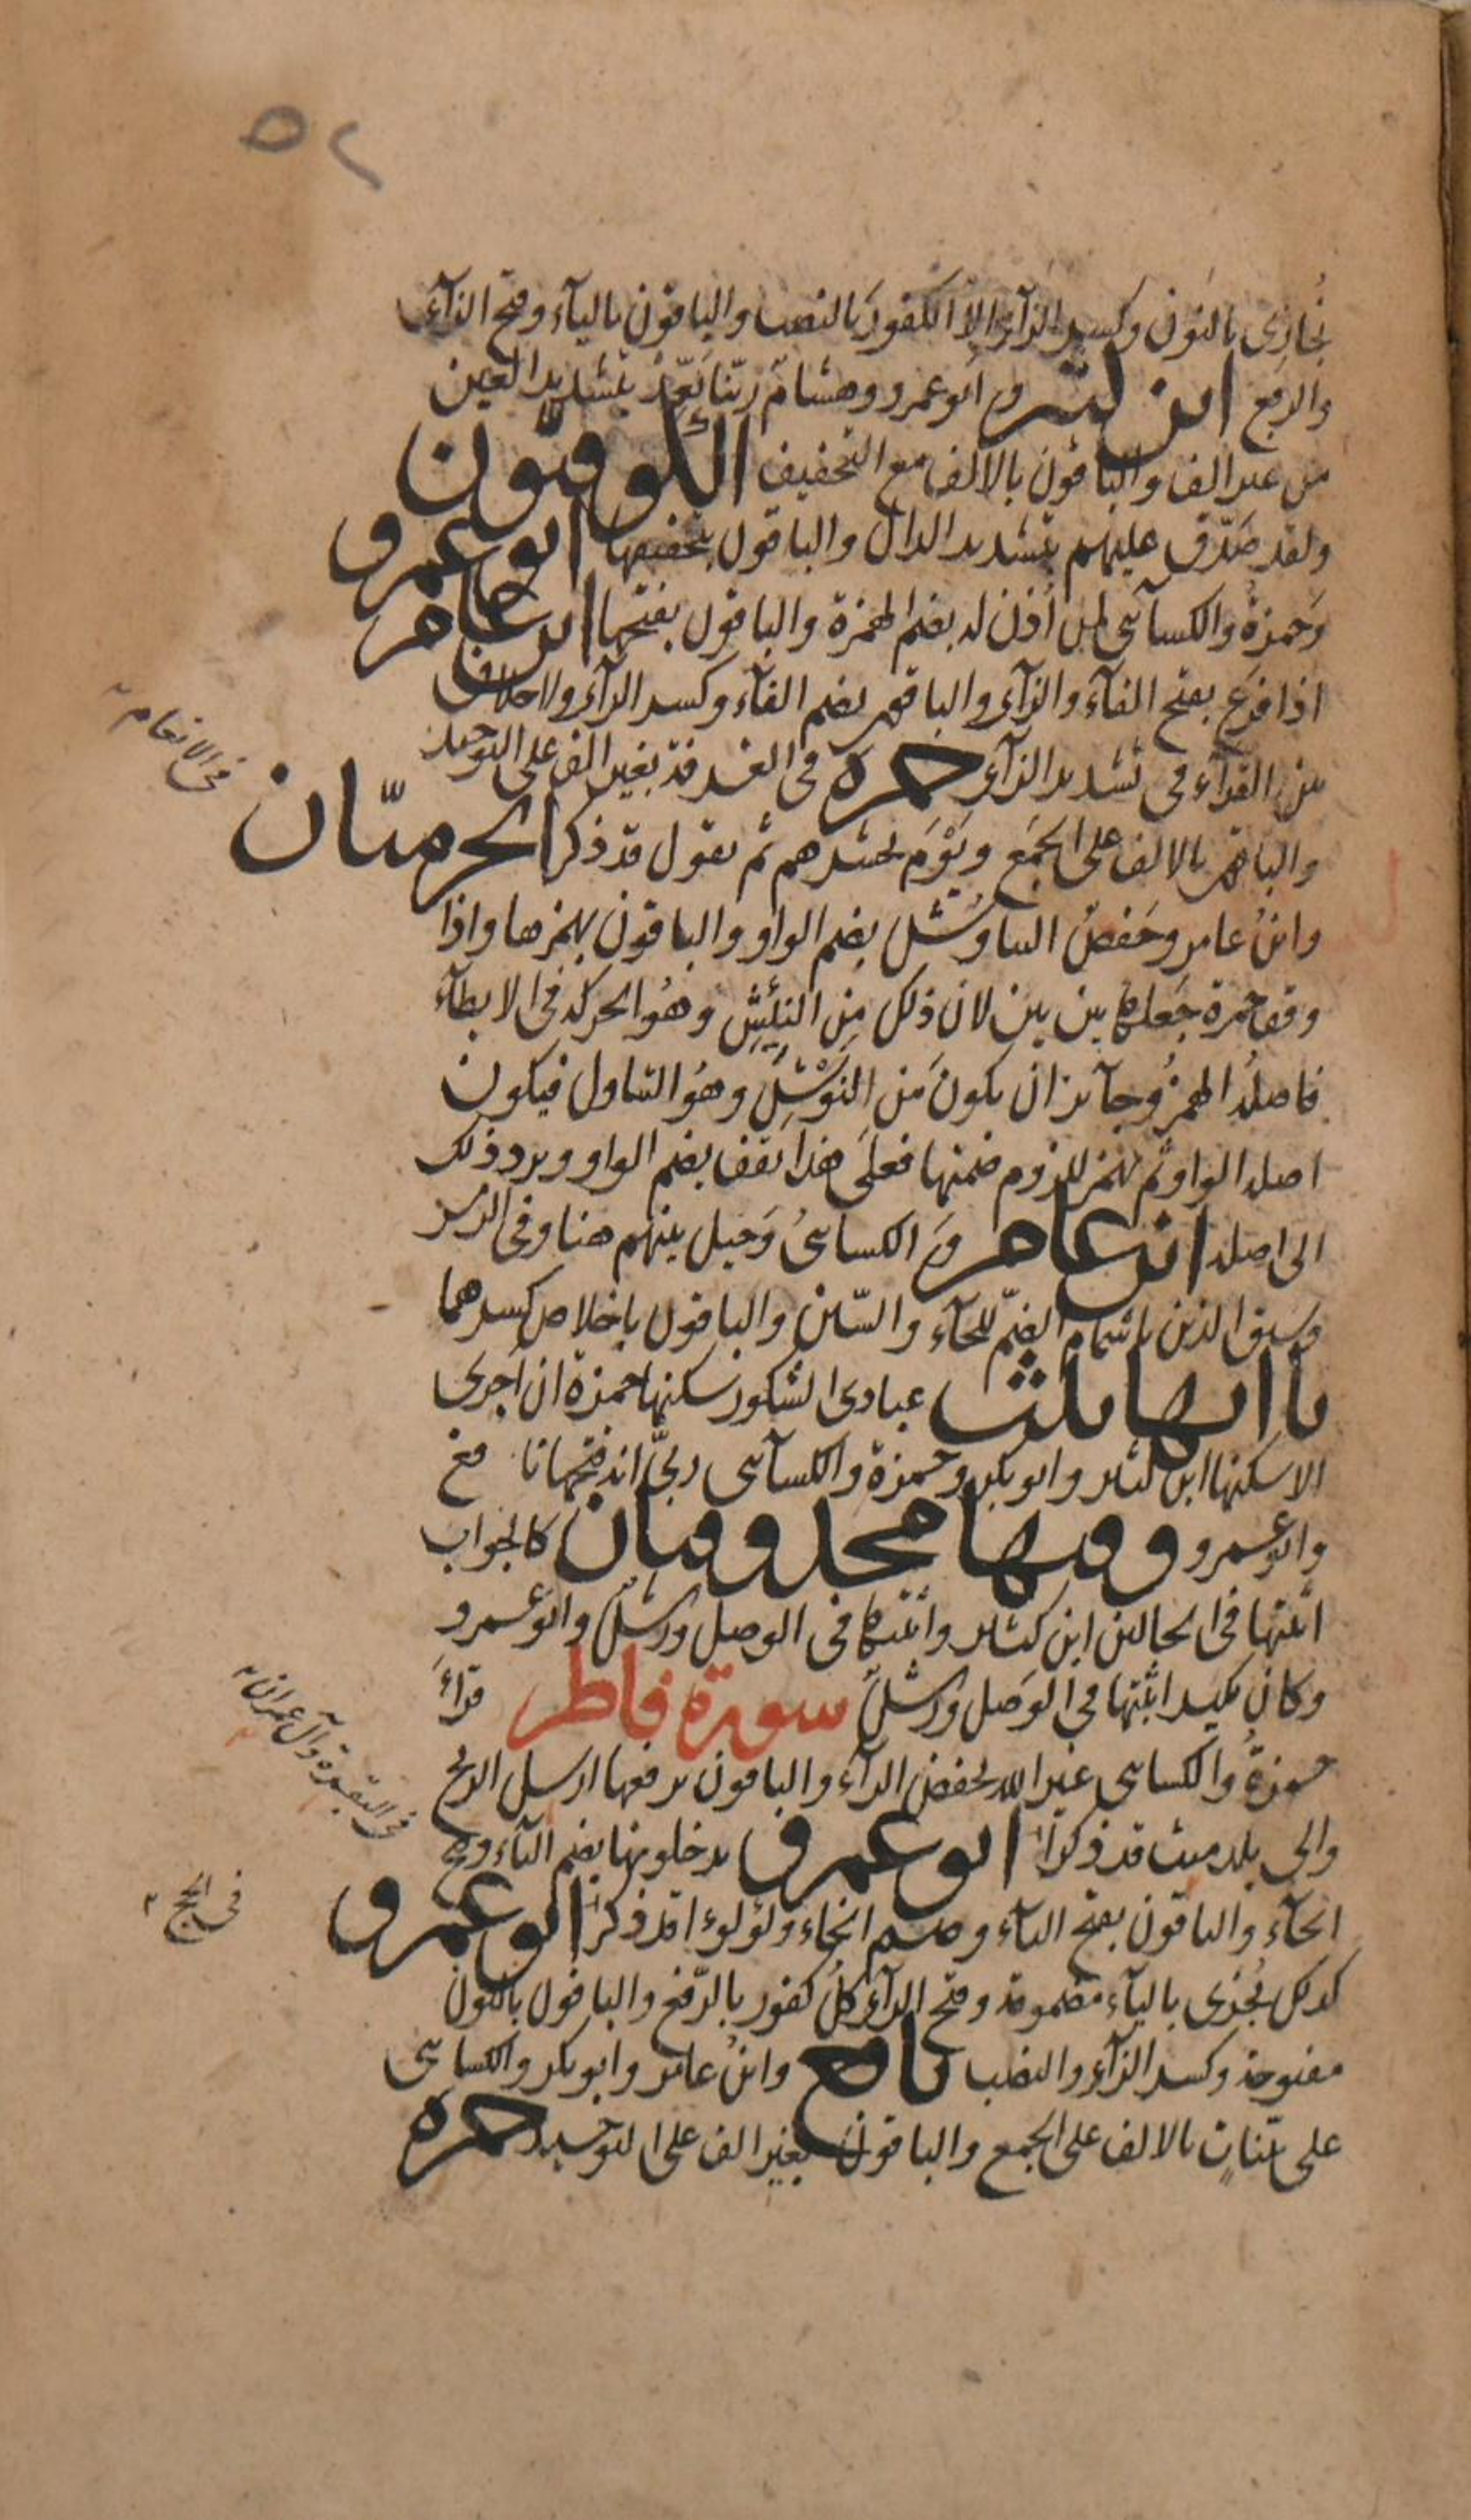 ٥٢
نُجازِى بالنون وكسر الزآء الا الكفورَ بالنصب والباقون باليآء وفتح الزآء
والرفع ابن كثير و ابو عمرو وهشام ربّنا بَعِّدْ بتشديد العين
من غير الف والباقون بالالف مع التخفيف الكوفيّون
ولقد صَدّق عليهم بتشديد الدال والباقون بتخفيفها ابو عمرو
وَحمزةُ والكسآئى لمن اُذن له بضم الهمزة والباقون بفتحها ابن عامر
اذا فزع بفتح الفآء والزآء والباقون بضم الفآء وكسر الزآء ولا خلاف
من القرآء فى تشديد الزآء حمزة فى الغرفة بغير الف على التوحيد
والباقون بالالف على الجمع ويَوْمَ يحشرهم ثم يقول قد ذكر الحرميّان
وابنُ عامر وحَفصٌ التناوُش بضم الواو والباقون بهمزها واذا
وقف حمزة جَعلها بين بين لان ذلك مِن النئيش وهُو الحركة فى الابطآء
فاصلهُ الهمزُ وجآئز ان يكونَ من النَوْشِ وهُو التناول فيكون
اصله الواو ثم تهمز للزوم ضمتها فعلى هذا تقف بضم الواو ويرد ذلك
الى اصله ابن عامر وَ الكسائىُ وَحيل بينهم هنا وفى الزمر
وسيق الذين باشمام الضمّ للحآء والسّين والباقون باخلاص كسرهما
يا اتها ثلث عبادى الشكور سكنها حمزة ان اجرى
الا سكنها ابن كثير وابو بكر وحمزة والكسآئى ربىّ انه فتحها نافع
وابو عمرو وفيها محذوفتان كالجواب
اثبتها فى الحالين ابن كثير واثبتها فى الوصل ورش وابو عمرو
وكان نكير اثبتها فى الوَصل ورش سورة فاطر قرأ
حمزةُ والكسائى غير الله بخفض الرآء والباقون برفعها ارسل الريح
والى بلد ميت قد ذكرا ابو عمرو يدخلونها بضم اليآء وفتح
الخآء والباقون بفتح اليآء وضم الخاء ولؤلوءا قد ذكر ابو عمرو
كذلك يُجزى باليآء مضمومة وفتح الزآء كلُ كفور بالرّفع والباقون بالنون
مفتوحة وكسر الزآء والنصب نافع وابنُ عامر وابو بكر والكسائى
على بيّناتٍ بالالف على الجمع والباقون بغير الف على التوحيد حمزة
فى الانعام
فى البقرة وآل عمران
فى الحج